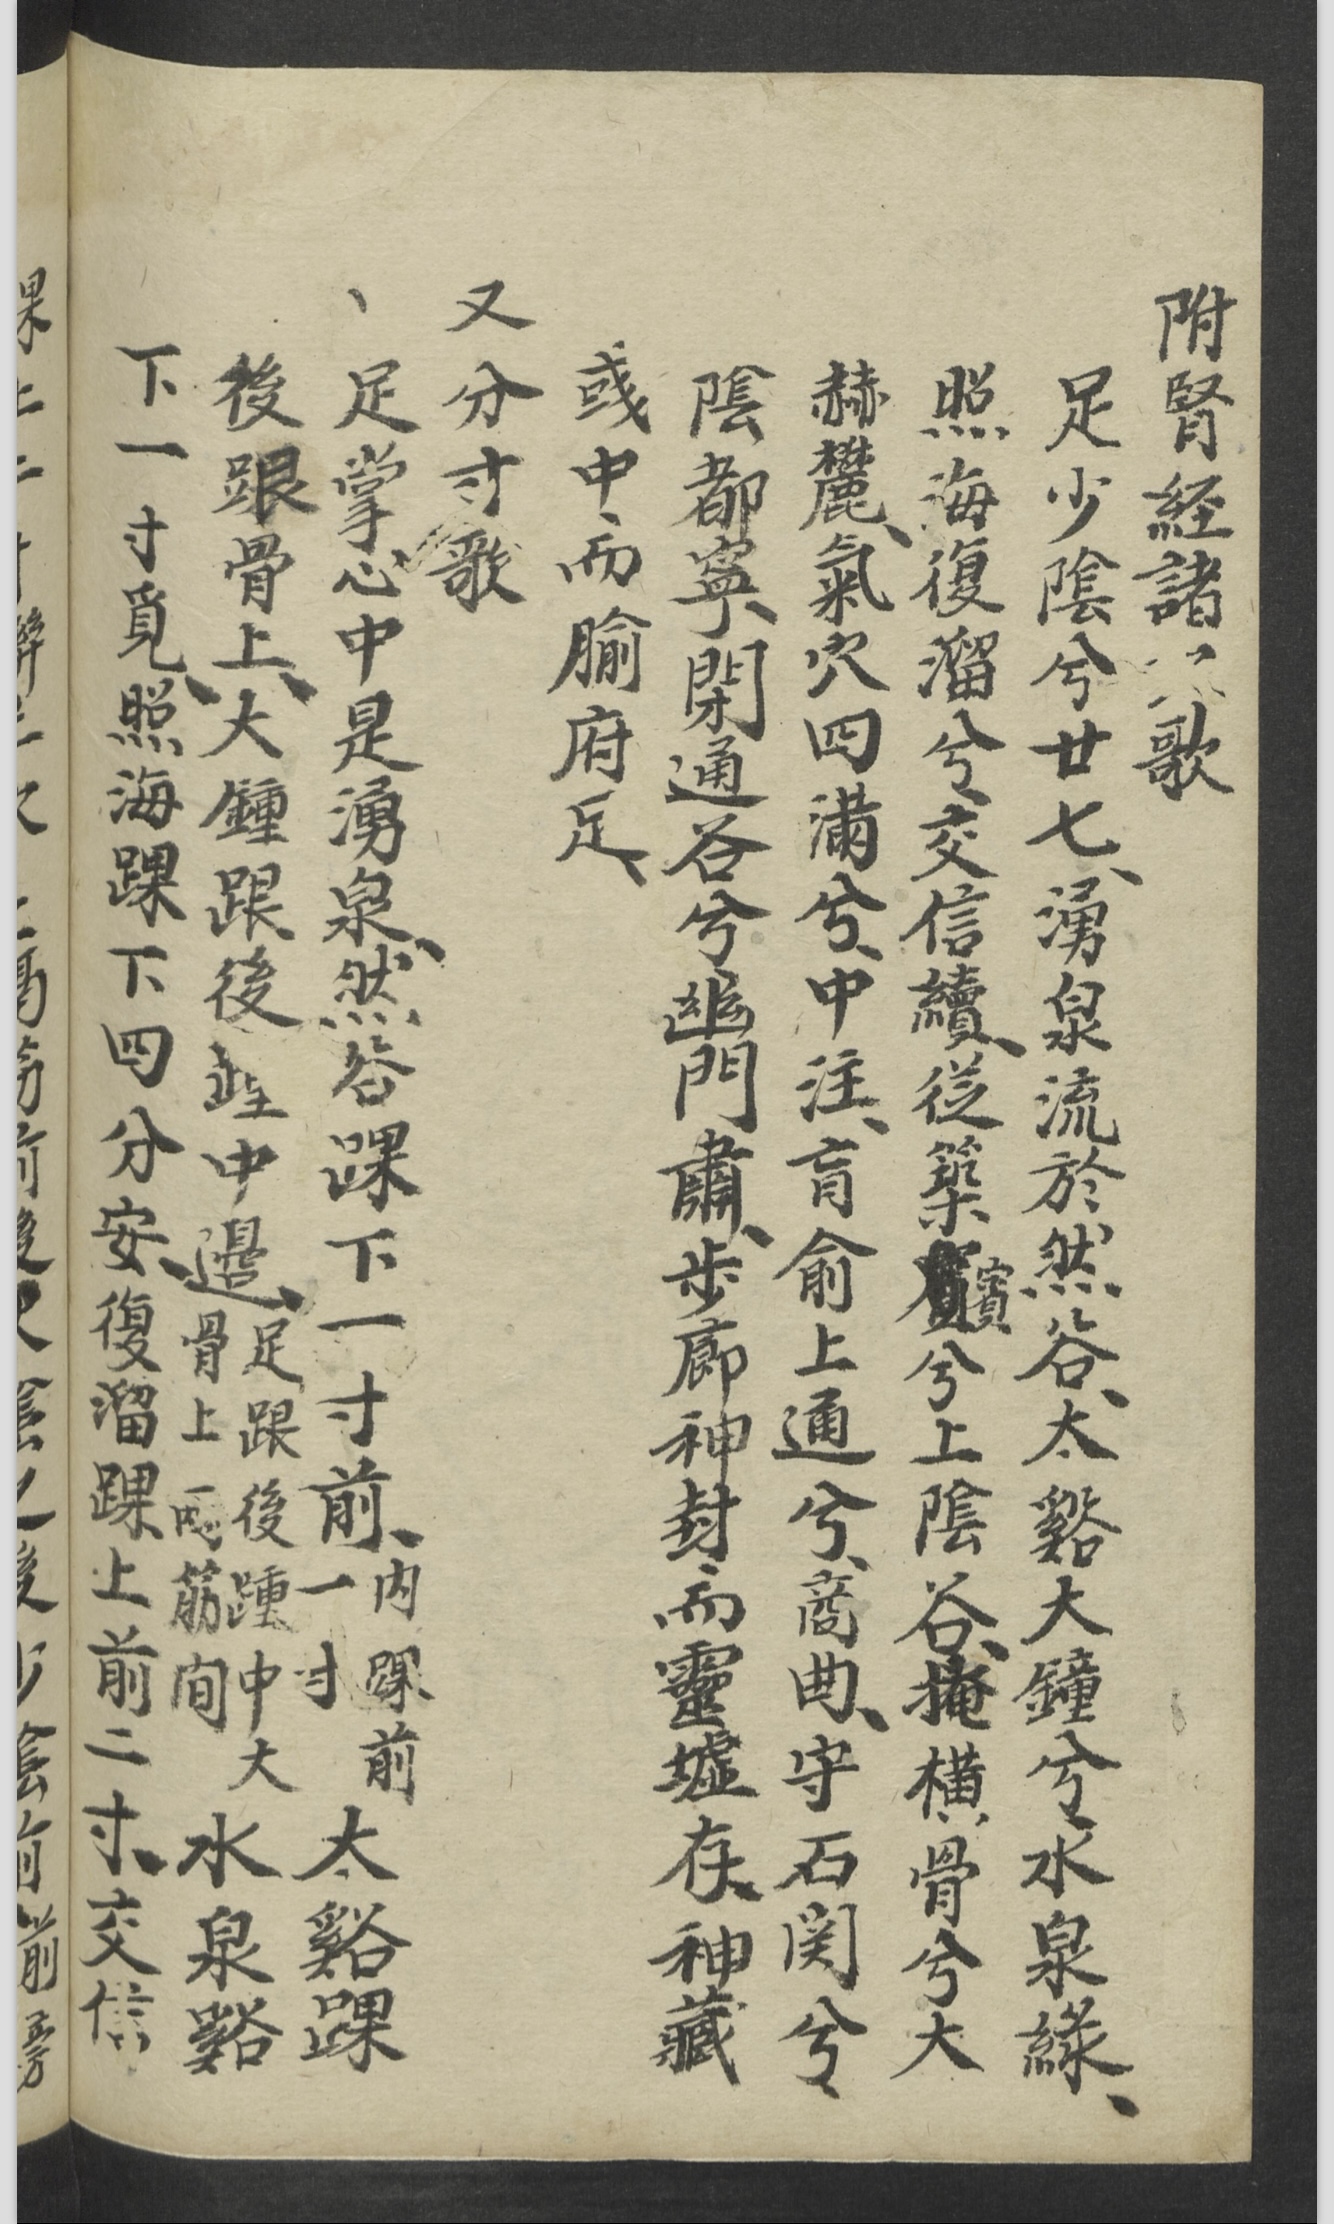 附腎経諸穴歌
足少陰兮廿七、湧泉流於然谷、太谿大鐘兮、水泉緣、
照海復溜兮、交信續、從築賓兮上陰谷、掩橫骨兮大
赫麓、氣穴四滿兮、中注、肓俞上通兮、商曲、守石関兮、
陰都寧、閉通谷兮幽門肅、步廊神封而靈墟存、神藏
彧中而腧府足、
又分寸歌
、足掌心中是湧泉、然谷踝下一寸前、內踝前一寸太谿踝
後跟骨上、大鍾跟後踵中邊、足跟後踵中大骨上両筋間水泉谿
下一寸覓、照海踝下四分安、復溜踝上前二寸、交信